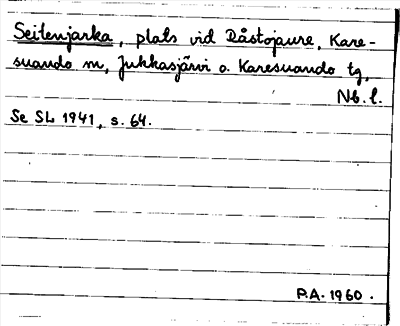 Seitenjarka, plats vid Råstojaure, Kare-
suando sn, Jukkasjärvi o. Karesuando tg,
Nb. l.
Se SL 1941, s. 64.
P.A. 1960.